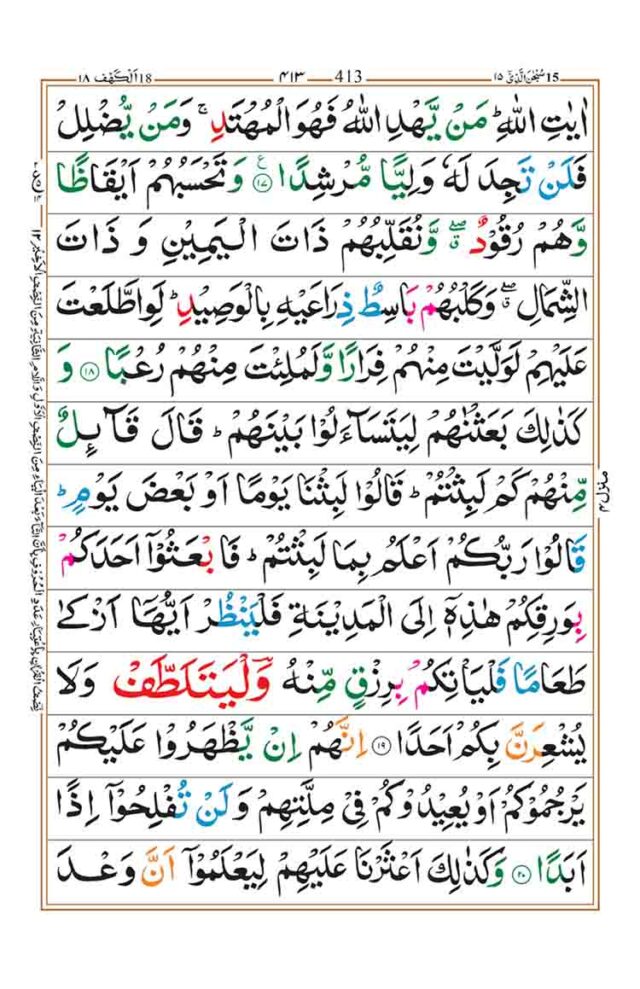 15 سُبْحٰنَ الَّذِیْ ۱۵
413 ۴۱۳
18 اَلْكَهْف ۱۸
اٰیٰتِ اللّٰهِ ؕ مَنْ یَّهْدِ اللّٰهُ فَهُوَ الْمُهْتَدِ ۚ وَمَنْ یُّضْلِلْ
فَلَنْ تَجِدَ لَهٗ وَلِیًّا مُّرْشِدًا ۧ ﴿۱۷﴾ وَتَحْسَبُهُمْ اَیْقَاظًا
وَّهُمْ رُقُوْدٌ ۖۗ وَّنُقَلِّبُهُمْ ذَاتَ الْیَمِیْنِ وَ ذَاتَ
الشِّمَالِ ۖۗ وَكَلْبُهُمْ بَاسِطٌ ذِرَاعَیْهِ بِالْوَصِیْدِ ؕ لَوِ اطَّلَعْتَ
عَلَیْهِمْ لَوَلَّیْتَ مِنْهُمْ فِرَارًا وَّلَمُلِئْتَ مِنْهُمْ رُعْبًا ﴿۱۸﴾ وَ
كَذٰلِكَ بَعَثْنٰهُمْ لِیَتَسَآءَلُوْا بَیْنَهُمْ ؕ قَالَ قَآىِٕلٌ
مِّنْهُمْ كَمْ لَبِثْتُمْ ؕ قَالُوْا لَبِثْنَا یَوْمًا اَوْ بَعْضَ یَوْمٍ ؕ
قَالُوْا رَبُّكُمْ اَعْلَمُ بِمَا لَبِثْتُمْ ؕ فَابْعَثُوْۤا اَحَدَكُمْ
بِوَرِقِكُمْ هٰذِهٖۤ اِلَی الْمَدِیْنَةِ فَلْیَنْظُرْ اَیُّهَاۤ اَزْكٰی
طَعَامًا فَلْیَاْتِكُمْ بِرِزْقٍ مِّنْهُ وَلْیَتَلَطَّفْ وَلَا
یُشْعِرَنَّ بِكُمْ اَحَدًا ﴿۱۹﴾ اِنَّهُمْ اِنْ یَّظْهَرُوْا عَلَیْكُمْ
یَرْجُمُوْكُمْ اَوْ یُعِیْدُوْكُمْ فِیْ مِلَّتِهِمْ وَلَنْ تُفْلِحُوْۤا اِذًا
اَبَدًا ﴿۲۰﴾ وَكَذٰلِكَ اَعْثَرْنَا عَلَیْهِمْ لِیَعْلَمُوْۤا اَنَّ وَعْدَ
منزل ۴